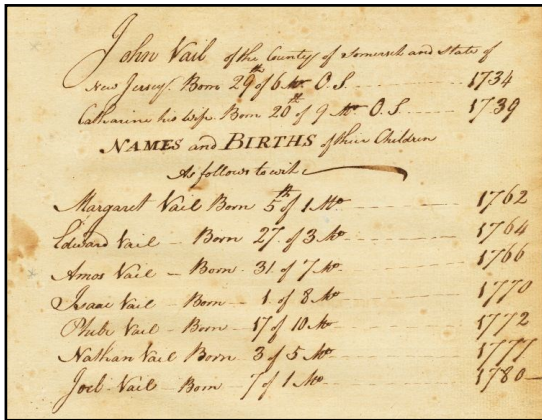 John Vail of the County of Somerset and State of
New Jersey. Born 29th of 6 Mo. O.S. 1734
Catharine his wife Born 20th of 9 Mo. O.S. 1739
NAMES and BIRTHS of their Children
As follows to wit
Margaret Vail Born 5th of 1 Mo 1762
Edward Vail - Born 27. of 3 Mo 1764
Amos Vail - Born 31. of 7 Mo 1766
Isaac Vail - Born 1. of 8 Mo 1770
Phebe Vail - Born 17 of 10 Mo 1772
Nathan Vail - Born 3 of 5 Mo 1777
Joel Vail - Born 7 of 1 Mo 1780